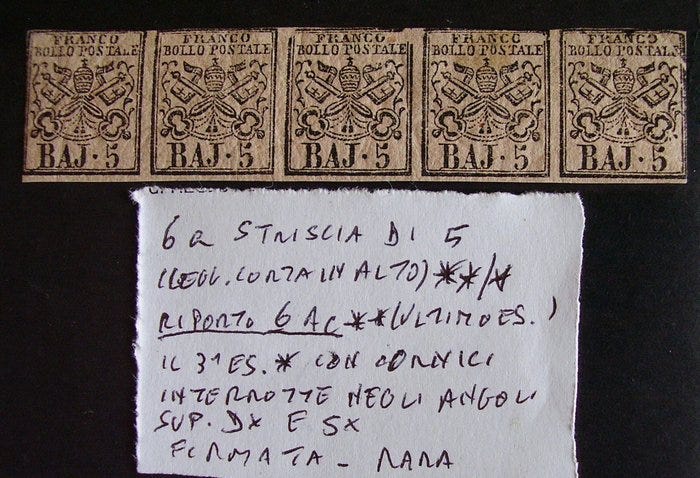 FRANCO FRANCO FRANCO FRANCO FRANCO
BOLLO POSTALE BOLLO POSTALE BOLLO POSTALE BOLLO POSTALE BOLLO POSTALE
BAJ·5 BAJ·5 BAJ·5 BAJ·5 BAJ·5
6a STRISCIA DI 5
(LEGG. CORTA IN ALTO) **/*
RIPORTO 6 Ac **(ULTIMO ES.)
IL 3° ES. * CON CORNICI
INTERROTTE NEGLI ANGOLI
SUP. DX E SX
FIRMATA - RARA